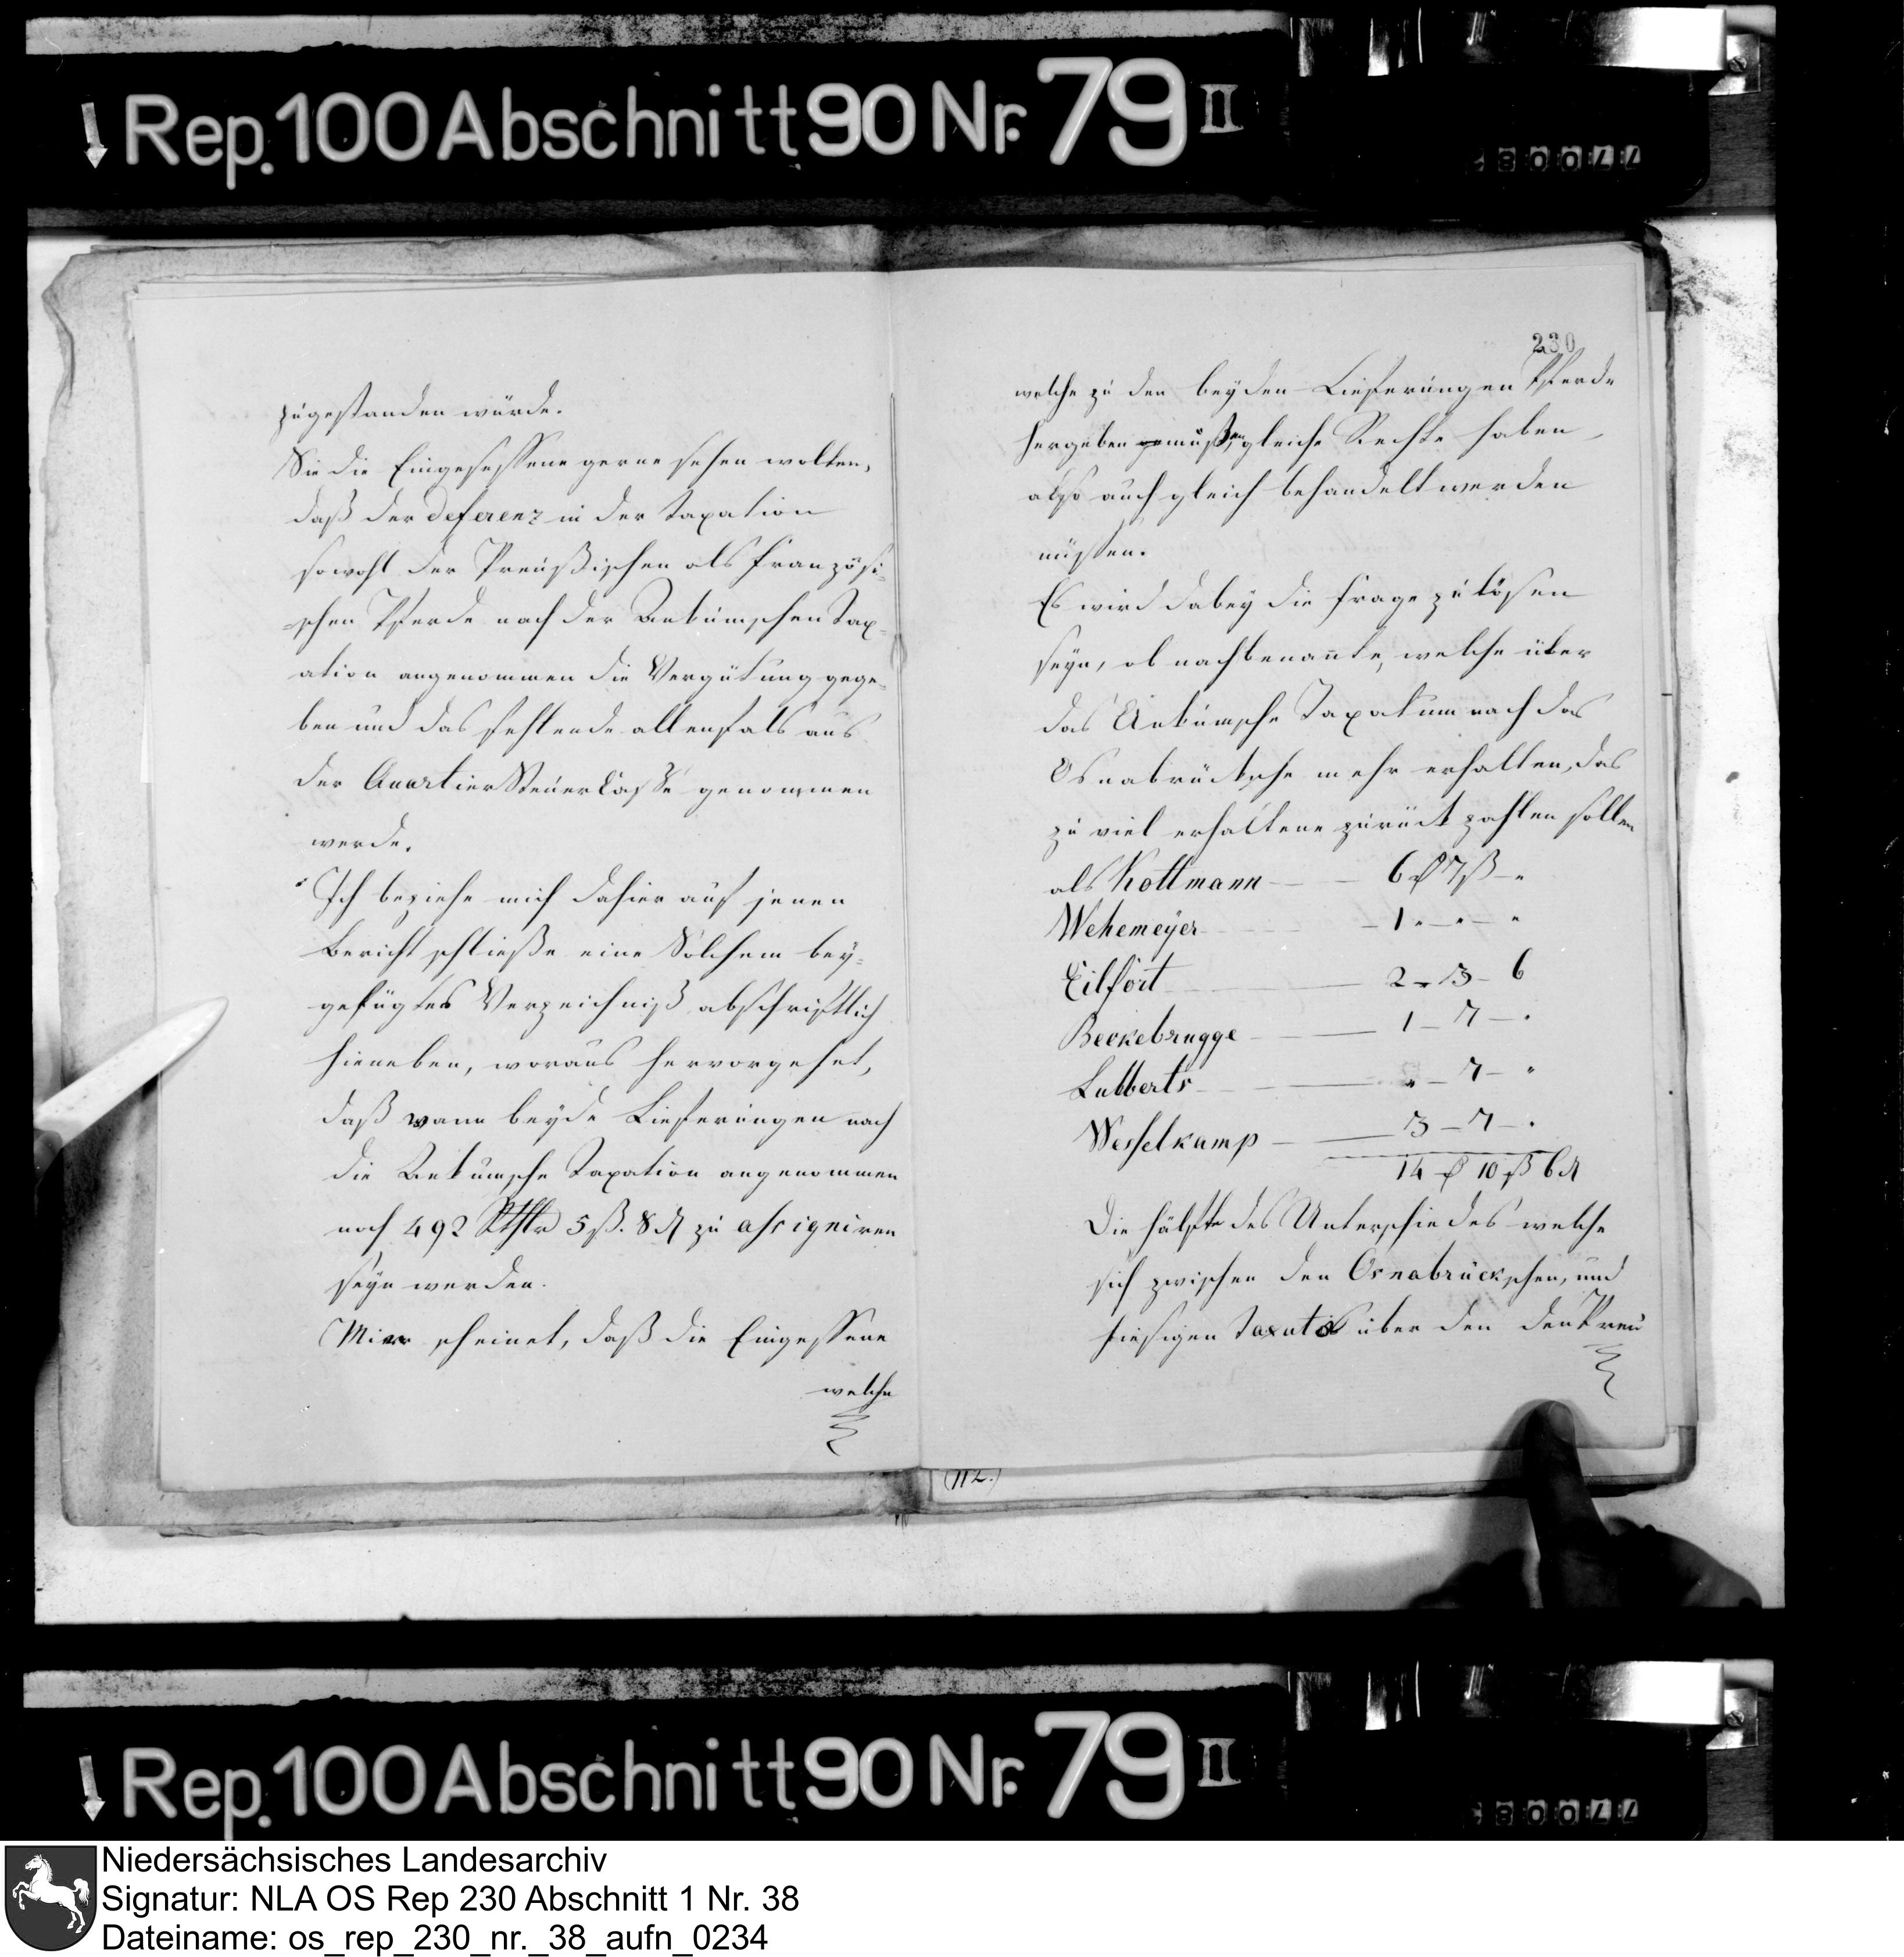 Rep. 100 Abschnitt 90 Nr. 79 II
zugestanden würde.
Sie die Eingesessene gerne sehen wolten,
daß der deferenz in der Taxation
sowohl der Preußischen als französi-
=schen Pferde nach der Ankumschen Tax-
ation angenommen die Vergütung gege-
ben und das fehlende allenfals aus
der Quartier Steuer Casse genommen
werde.
Ich beziehe mich dahier auf jenen
Bericht schließe eine Solchem bey=
gefügtes Verzeichniß abschriftlich
hieneben, woraus hervorgehet,
daß wann beyde Lieferungen nach
die Ankumsche Taxation angenommen
noch 492 Rthlr 5 ß. 8 d zu assigniren
seyn werden.
Mir scheinet, daß die Eingessene
welche
230
welche zu den beyden Lieferungen Pferde
hergeben mußten, gleiche Rechte haben
also auch gleich behandelt werden
müssen.
Es wird dabey die frage zu lösen
seyn, ob nachbenante, welche über
das Ankumsche Taxatum nach das
Osnabrücksche mehr erhalten, das
zu viel erhaltene zurück zahlen sollen
als Kottmann — 6 rt 7 ß - "
Wehemeyer — 1 " - " - "
Eilfort — 2 - 13 - 6
Beckebrugge — 1 - 7 - "
Lubberts — " - 7 - "
Wesselkamp — 3 - 7 - "
14 rt 10 ß 6 d
Die hälfte des Unterschiedes welche
sich zwischen den Osnabrückschen, und
hiesigen Taxato über den den Preu
(112.)
Rep. 100 Abschnitt 90 Nr. 79 II
Niedersächsisches Landesarchiv
Signatur: NLA OS Rep 230 Abschnitt 1 Nr. 38
Dateiname: os_rep_230_nr._38_aufn_0234